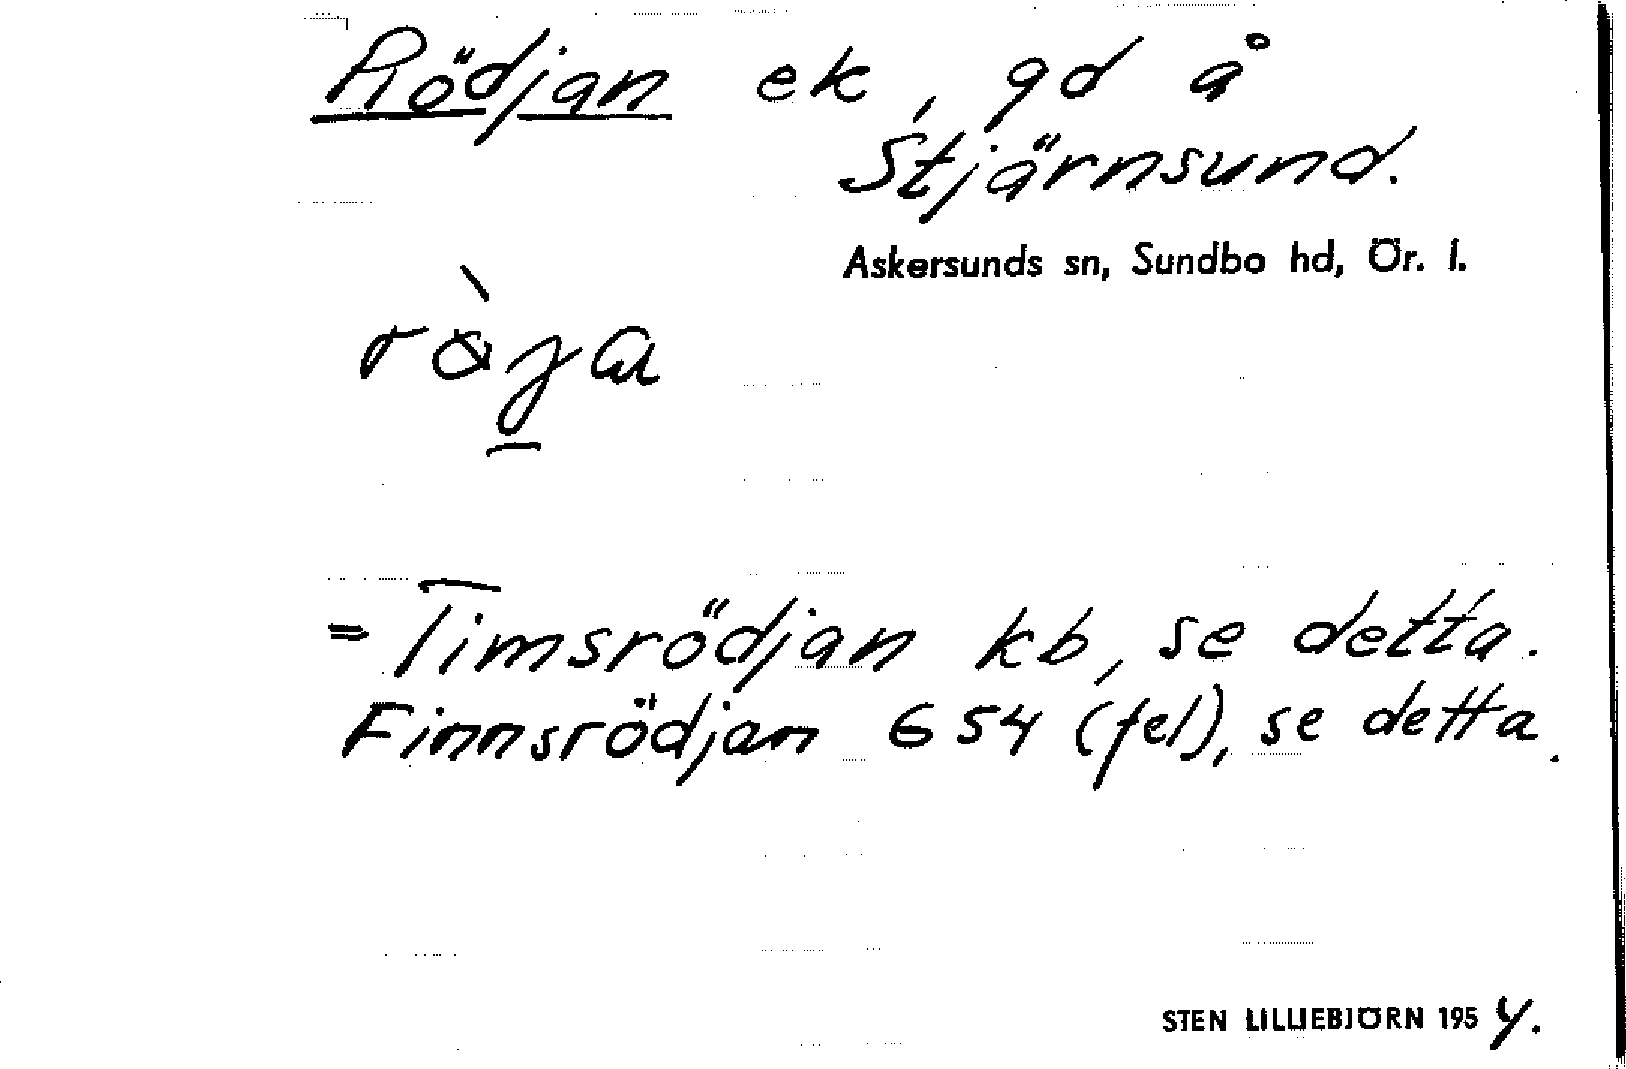 Rödjan ek, gd å
Stjärnsund.
Askersunds sn, Sundbo hd, Ör. l.
= Timsrödjan kb, se detta.
Finnsrödjan G 54 (fel), se detta.
STEN LILLIEBJÖRN 1954.